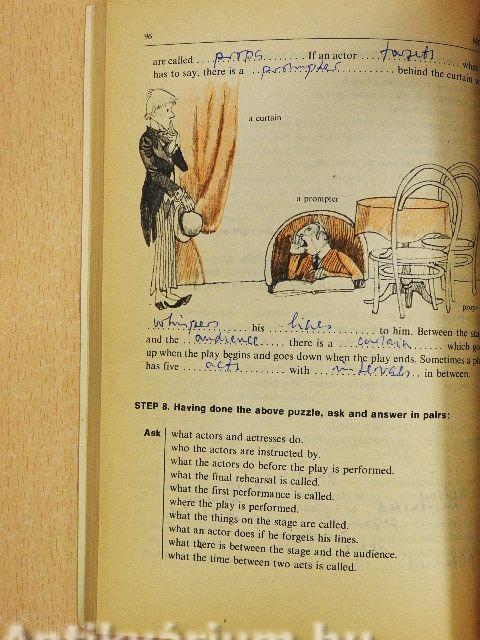 96
are called ...props........ If an actor ....forgets........ what
has to say, there is a ...prompter............ behind the curtain w
a curtain
a prompter
props
..whispers........ his .....lines.......... to him. Between the sta
and the ...audience....... there is a .....curtain........ which go
up when the play begins and goes down when the play ends. Sometimes a pl
has five .....acts........ with ....intervals... in between.
STEP 8. Having done the above puzzle, ask and answer in pairs:
Ask what actors and actresses do.
who the actors are instructed by.
what the actors do before the play is performed.
what the final rehearsal is called.
what the first performance is called.
where the play is performed.
what the things on the stage are called.
what an actor does if he forgets his lines.
what there is between the stage and the audience.
what the time between two acts is called.
Antikvárium.hu